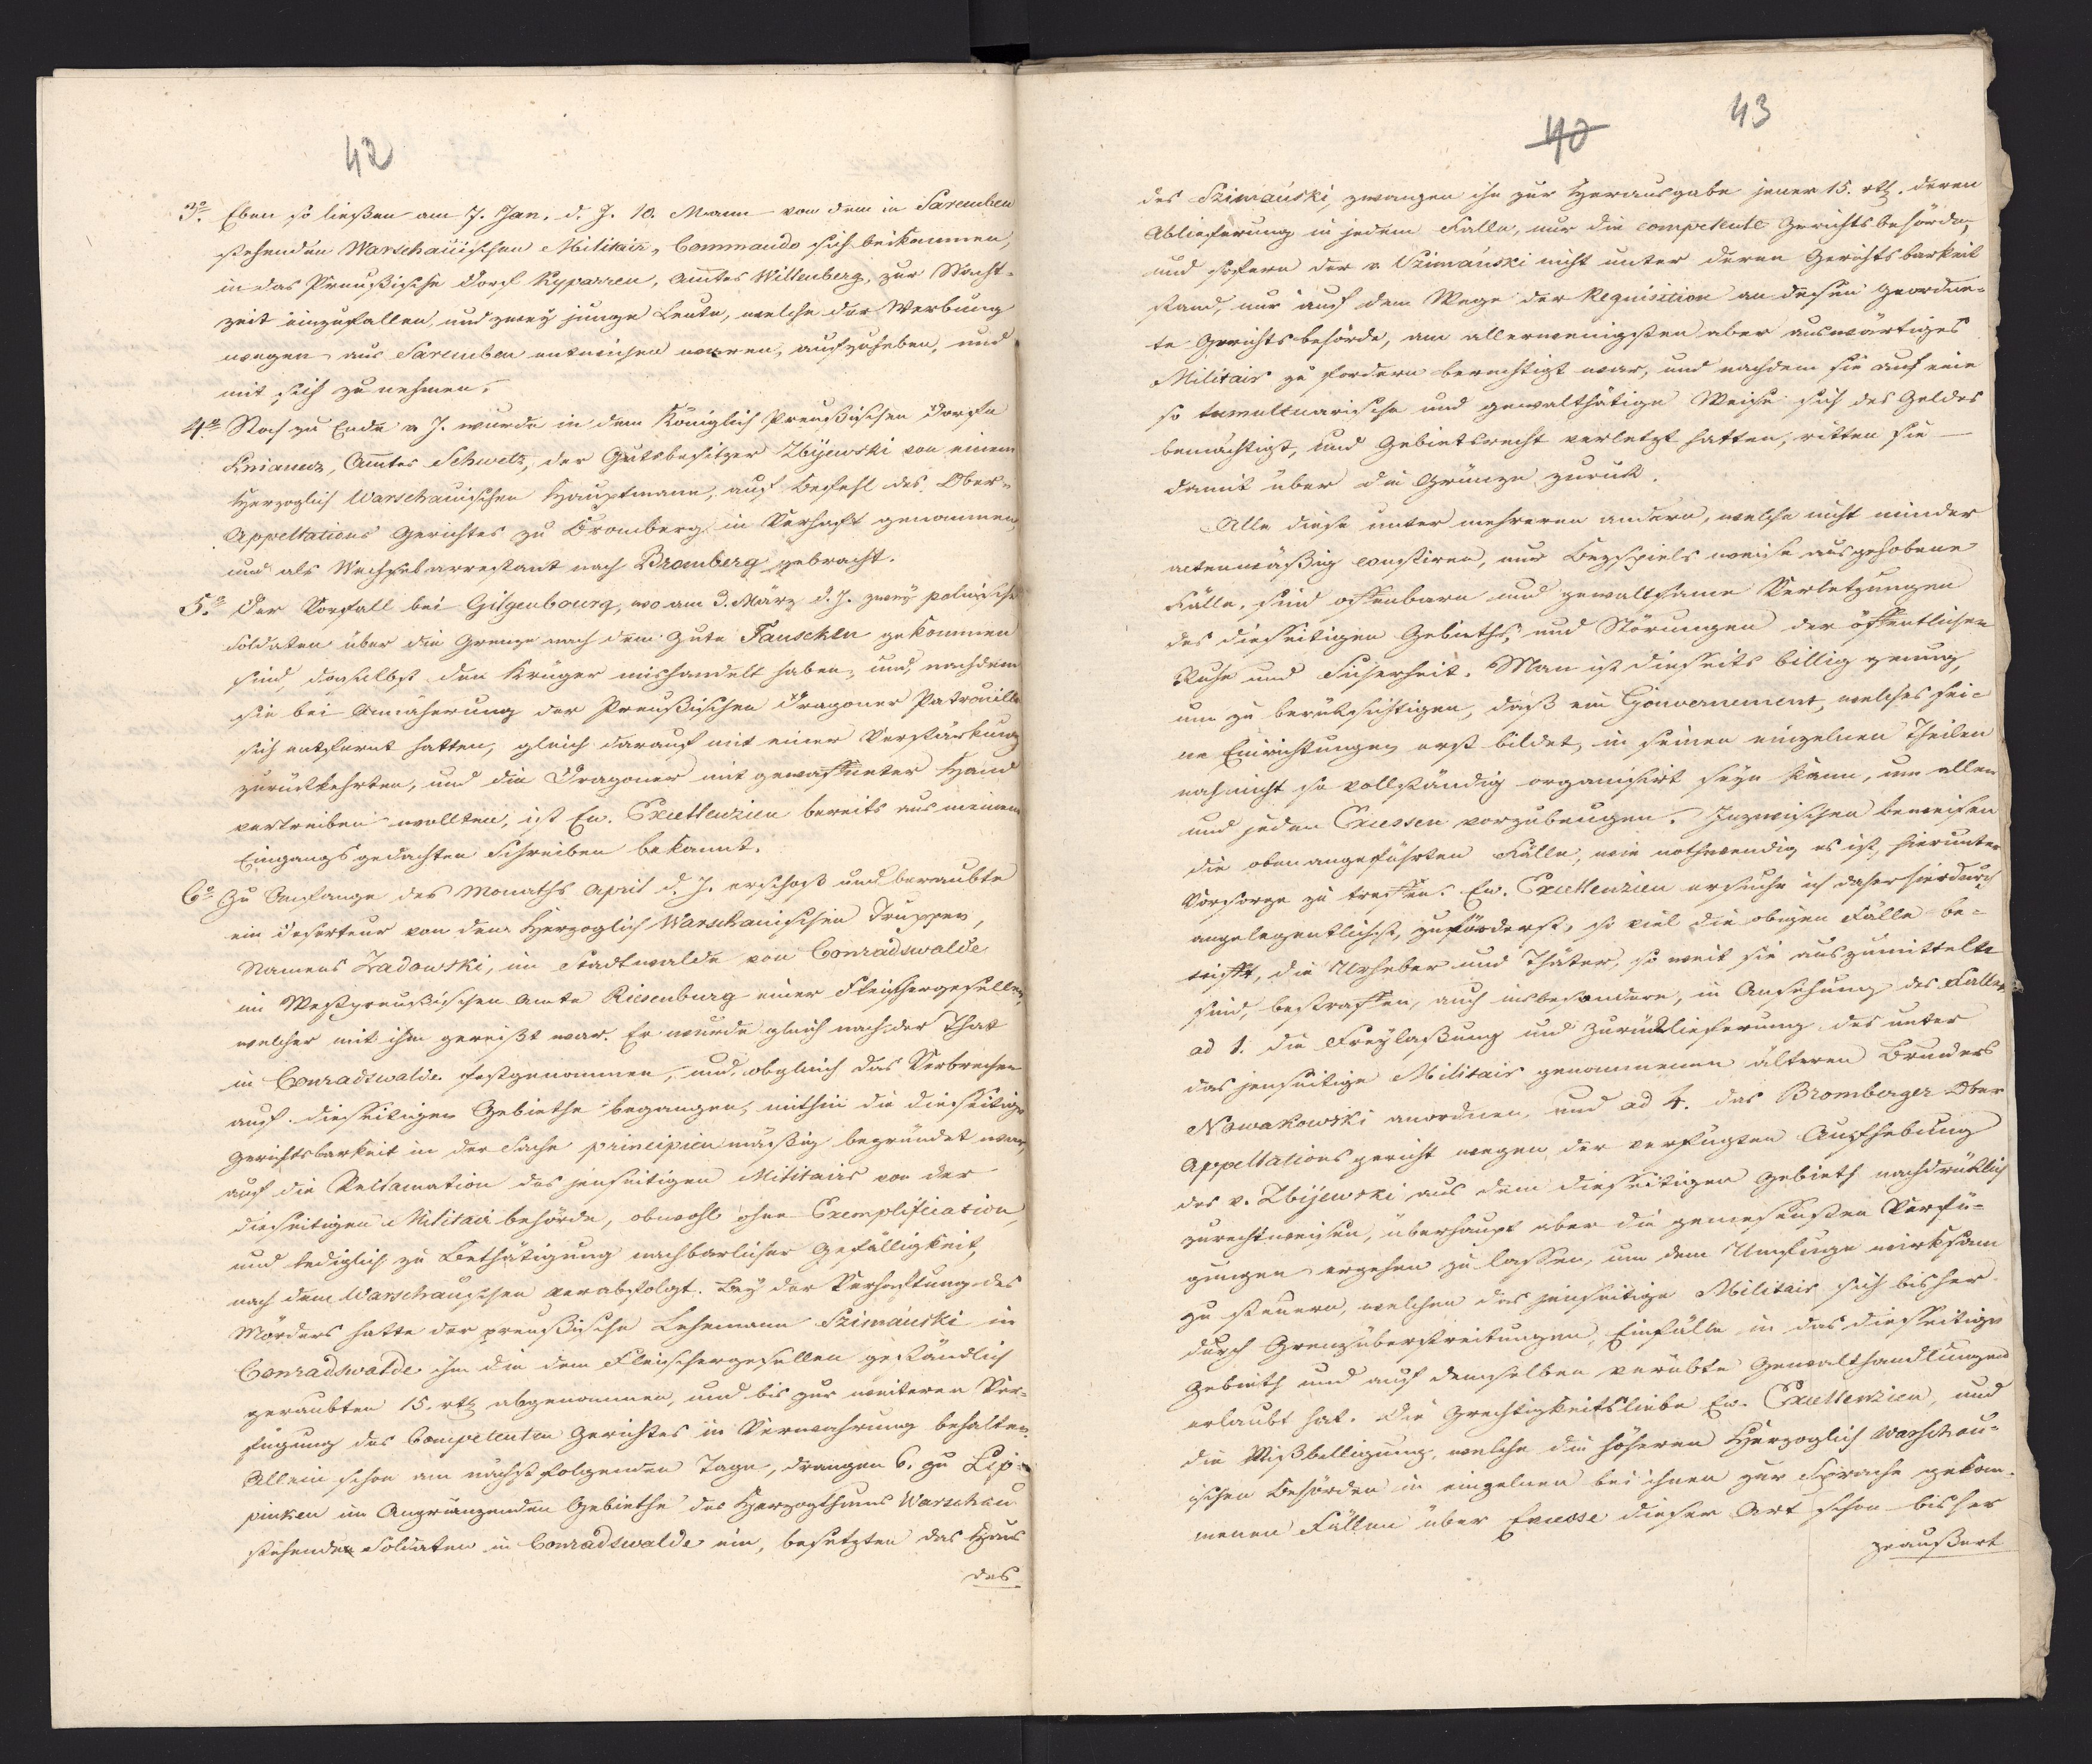 42
3º. Eben so ließen am 7. Jan. d. J. 10. Mann von dem in Saremben
stehenden Warschauischen Militair-Commando sich beikommen,
in das Preußische Dorf Kyparren, Amtes Willenberg, zur Nacht-
zeit einzufallen und zwey junge Leute, welche der Werbung
wegen aus Saremben entwichen waren, aufzuheben, und
mit sich zu nehmen.
4º. Noch zu Ende v. J. wurde in dem Königlich Preußischen Dorfe
Amtes Schwetz, der Gutsbesitzer Zbijewski von einem
Herzoglich Warschauischen Hauptmann, auf Befehl des Ober-
Appellations Gerichtes zu Bromberg in Verhaft genommen,
und als Wechselarrestant nach Bromberg gebracht.
5º. Der Vorfall bei Gilgenbourg, wo am 3. März d. J. zwey polnische
Soldaten über die Grenze nach dem Gute Fauschkln gekommen
sind, daselbst den Krüger mishandelt haben, und nachdem
sie bei Annäherung der Preußischen Dragoner Patrouille
sich entfernt hatten, gleich darauf mit einer Verstärkung
zurückkehrten, und die Dragoner mit gewaffneter Hand
vertreiben wollten, ist Ew. Excellenzien bereits aus meinem
Eingangs gedachten Schreiben bekannt.
6º. Zu Anfange des Monaths April d. J. erschoß und beraubte
ein Deserteur von den Herzoglich Warschauischen Truppen,
Namens Zadowski, im Stadtwalde von Conradswalde
im Westpreußischen Amte Riesenburg einen Fleischergesellen,
welcher mit ihm gereißt war. Er wurde gleich nach der That
in Conradswalde festgenommen, und obgleich das Verbrechen
auf diesseitigen Gebiethe begangen, mithin die diesseitige
Gerichtsbarkeit in der Sache principienmäßig begründet war,
auf die Reclamation des jenseitigen Militairs von der
diesseitigen Militair behörde, obwohl ohne Exemplification,
und lediglich zu Bethätigung nachbarlicher Gefälligkeit,
nach dem Warschauischen verabfolgt. Bey der Verhaftung des
Mörders hatte der preußische Lehmann Szimański in
Conradswalde ihm die dem Fleischergesellen geständlich
geraubten 15. rtl. abgenommen, und bis zur weiteren Ver-
fügung des Competenten Gerichtes in Verwahrung behalten.
Allein schon am nächstfolgenden Tage, drangen 6. zu Lip-
pinken im Angränzenden Gebiethe des Herzogthums Warschau
stehenden Soldaten in Conradswalde ein, besetzten das Haus
des
40
43
des Szimański, zwangen ihn zur Herausgabe jener 15. rtl. deren
Ablieferung in jedem Falle, nur die competente Gerichtsbehörde,
und sofern der v Szimański nicht unter deren Gerichtsbarkeit
stand, nur auf dem Wege der Requisition an dessen geordne-
te Gerichtsbehörde, am allerwenigsten aber auswärtiges
Militair zu fordern berechtigt war, und nachdem sie auf eine
so tumultuarische und gewaltthätige Weise sich des Geldes
bemächtigt, und Gebietsrecht verletzt hatten, ritten sie
damit über die Gränze zurück.
Alle diese unter mehreren andern, welche nicht minder
actenmäßig constiren, nur Beyspiels weise ausgehobene
Fälle, sind offenbare und gewaltsame Verletzungen
des diesseitigen Gebieths, und Störungen der öffentlichen
Ruhe und Sicherheit. Man ist diesseits billig genung,
um zu berücksichtigen, daß ein Gouvernement, welches sei-
ne Einrichtungen erst bildet, in seinen einzelnen Theilen
noch nicht so vollständig organisirt seyn kann, um allen
und jeden Excessen vorzubeugen. Inzwischen beweisen
die oben angeführten Fälle, wie nothwendig es ist, hierunter
Vorsorge zu treffen. Ew. Excellenzien ersuche ich daher hierdurch
angelegentlichst, zuförderst, so viel die obigen Fälle be-
trifft, die Urheber und Thäter, so weit sie auszumitteln
sind, bestraffen, auch insbesondere, in Ansehung des Falles
ad 1. die Freylaßung und Zurücklieferung des unter
das jenseitige Militair genommenen älteren Bruders
Nowakowski anordnen, und ad 4. das Bromberger Ober
Appellationsgericht wegen der verfügten Aufhebung
des v. Zbijewski aus dem diesseitigen Gebieth nachdrücklich
zurechtweisen, überhaupt aber die gemessensten Verfü-
gungen ergehen zu lassen, um dem Unfuge wirksam
zu steuern, welchen das jenseitige Militair sich bisher
durch Grenzüberschreitungen, Einfälle in das diesseitige
Gebieth und auf demselben verübte Gewalthandlungen
erlaubt hat. Die Gerechtigkeitsliebe Ew. Excellenzien, und
die Mißbilligung, welche die höheren Herzoglich Warschau-
ischen Behörden in einzelnen bei ihnen zur Sprache gekom-
menen Fällen über Excesse dieser Art schon bisher
geäußert